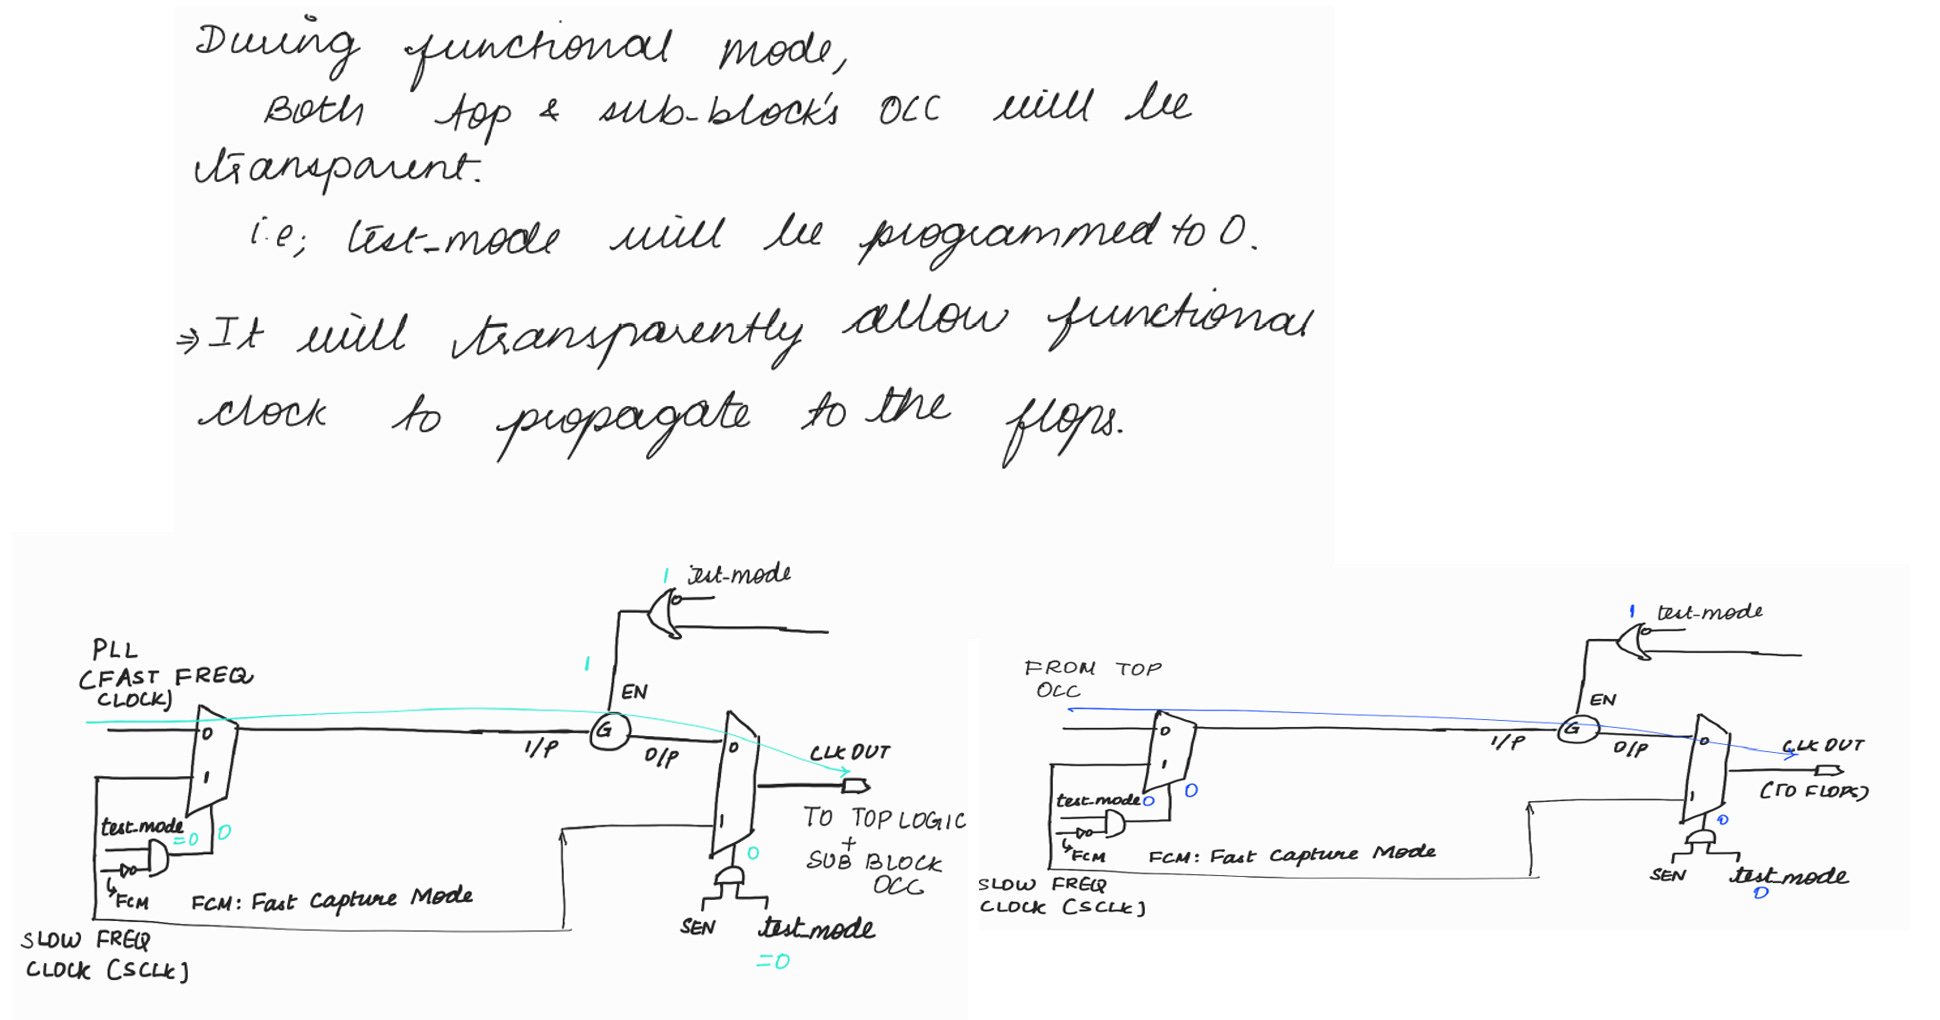 During functional mode,
Both top & sub-block's OCC will be
transparent.
i.e; test-mode will be programmed to 0.
⇒ It will transparently allow functional
clock to propagate to the flops.
1 test-mode
PLL
(FAST FREQ
CLOCK)
1
EN
0
G
I/P
O/P
0
CLK OUT
1
test-mode
=0 0
1
0
TO TOP LOGIC
+
SUB BLOCK
OCC
FCM
FCM: Fast Capture Mode
SEN
test-mode
=0
SLOW FREQ
CLOCK [SCLK]
1 test-mode
FROM TOP
OCC
EN
0
G
I/P
O/P
0
CLK OUT
1
(TO FLOPS)
test-mode 0
0
1
0
FCM
FCM: Fast Capture Mode
SEN
test-mode
0
SLOW FREQ
CLOCK [SCLK]